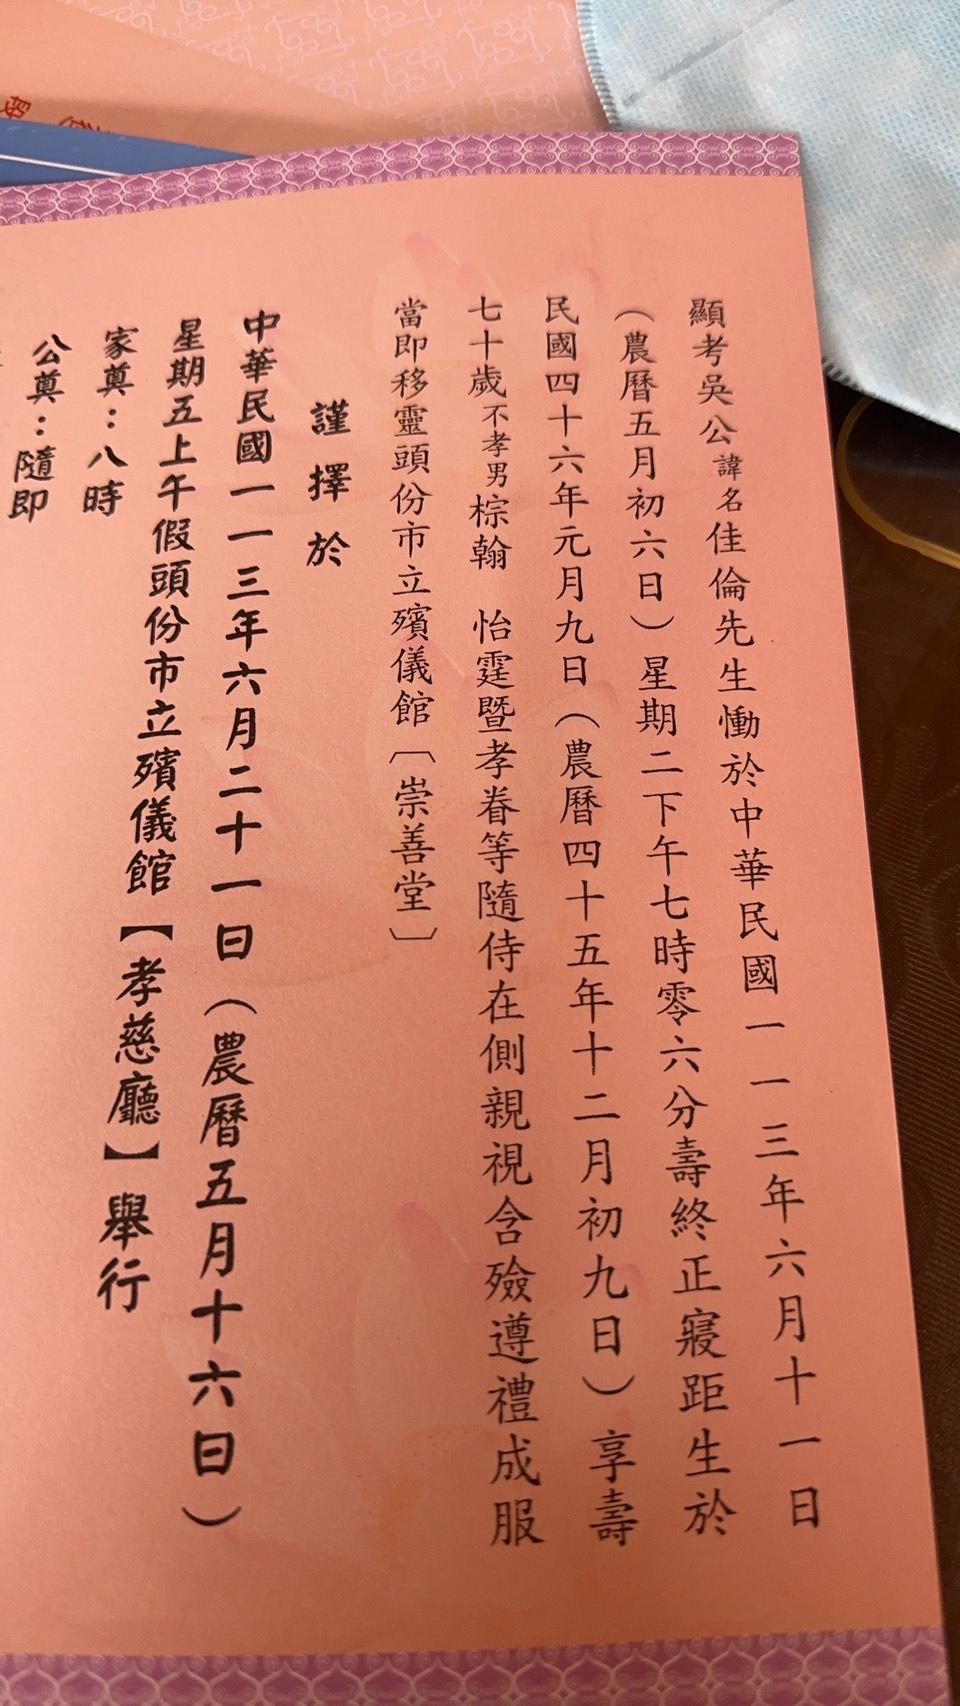 顯考吳公諱名佳倫先生慟於中華民國一一三年六月十一日
（農曆五月初六日）星期二下午七時零六分壽終正寢距生於
民國四十六年元月九日（農曆四十五年十二月初九日）享壽
七十歲不孝男棕翰　怡霆暨孝眷等隨侍在側親視含殮遵禮成服
當即移靈頭份市立殯儀館〔崇善堂〕
謹擇於
中華民國一一三年六月二十一日（農曆五月十六日）
星期五上午假頭份市立殯儀館【孝慈廳】舉行
家奠：八時
公奠：隨即